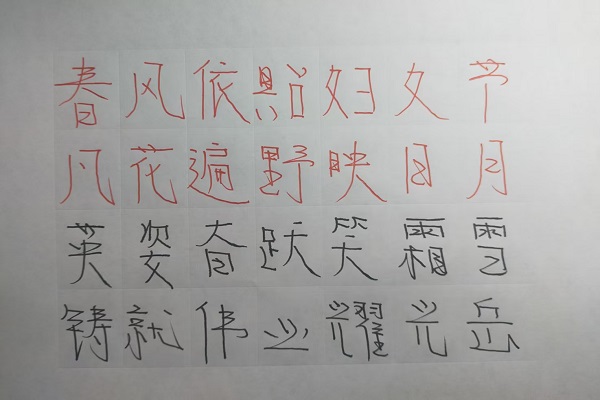 春风依照妇女节
凡花遍野映日月
英姿奋跃笑霜雪
铸就伟业耀光岳